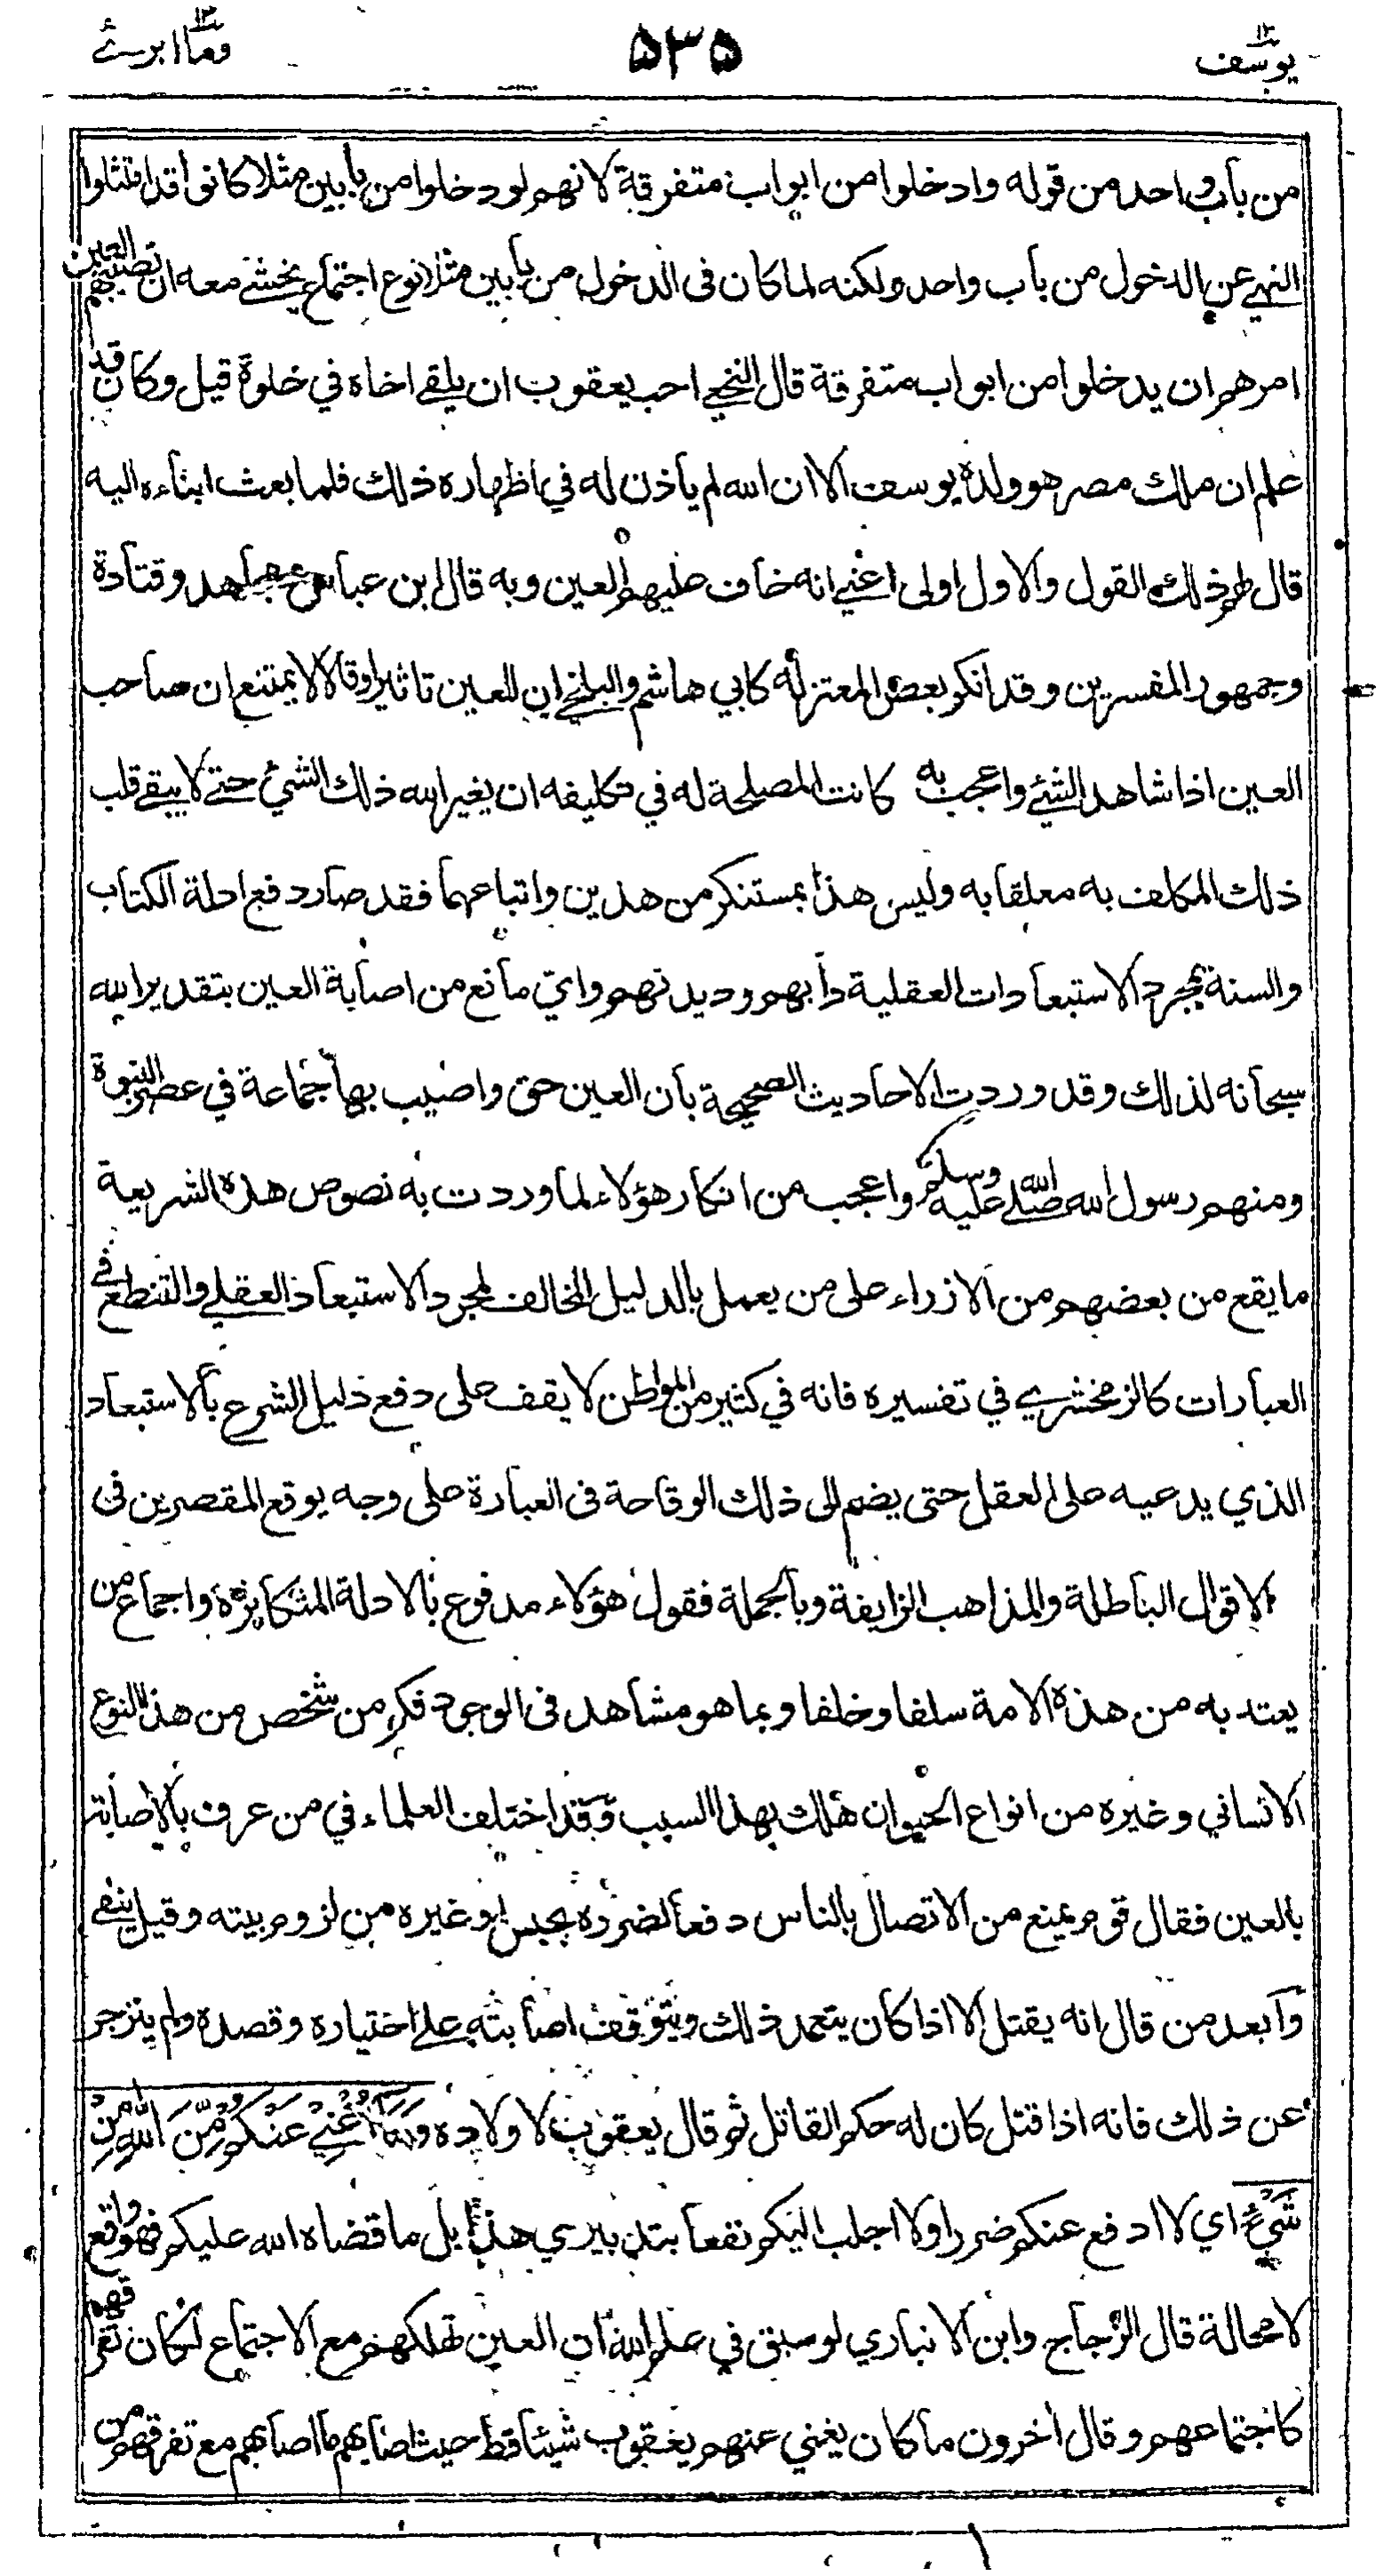 يوسف ١٢
٥٣٥
وما ابرئ ١٣
من باب واحد من قوله وادخلوا من ابواب متفرقة لانهم لو دخلوا من بابين مثلا كانوا قد امتثلوا
النهي عن الدخول من باب واحد ولكنه لما كان في الدخول من بابين مثلا نوع اجتماع يخشى معه ان تصيبهم العين
امرهم ان يدخلوا من ابواب متفرقة قال النخعي احب يعقوب ان يلقى اخاه في خلوة قيل وكان قد
علم ان ملك مصر هو ولده يوسف الا ان الله لم ياذن له في اظهاره ذلك فلما بعث ابناءه اليه
قال لهم ذلك القول والاول اولى اعني انه خاف عليهم العين وبه قال ابن عباس ومجاهد وقتادة
وجمهور المفسرين وقد انكر بعض المعتزلة كابي هاشم والبلخي ان للعين تاثيرا وقالا لا يمتنع ان صاحب
العين اذا شاهد الشئ واعجب به كانت المصلحة له في تكليفه ان يغير الله ذلك الشئ حتى لا يبقى قلب
ذلك المكلف به معلقا به وليس هذا بمستنكر من هذين واتباعهما فقد صار دفع ادلة الكتاب
والسنة بمجرد الاستبعادات العقلية دأبهم وديدنهم واي مانع من اصابة العين بتقدير الله
سبحانه لذلك وقد وردت الاحاديث الصحيحة بان العين حق واصيب بها جماعة في عصر النبوة
ومنهم رسول الله صلى الله عليه وسلم واعجب من انكار هؤلاء لما وردت به نصوص هذه الشريعة
ما يقع من بعضهم من الازراء على من يعمل بالدليل المخالف لمجرد الاستبعاد العقلي والتنطع في
العبارات كالزمخشري في تفسيره فانه في كثير من المواطن لا يقف على دفع دليل الشرع بالاستبعاد
الذي يدعيه على العقل حتى يضم الى ذلك الوقاحة في العبارة على وجه يوقع المقصرين في
الاقوال الباطلة والمذاهب الزايفة وبالجملة فقول هؤلاء مدفوع بالادلة المتكاثرة واجماع من
يعتد به من هذه الامة سلفا وخلفا وبما هو مشاهد في الوجود فكم من شخص من هذا النوع
الانساني وغيره من انواع الحيوان هلك بهذا السبب وقد اختلف العلماء في من عرف بالاصابة
بالعين فقال قوم يمنع من الاتصال بالناس دفعا لضرره بحبس او غيره من لزوم بيته وقيل ينفى
وابعد من قال انه يقتل الا اذا كان يتعمد ذلك ويتوقف اصابته على اختياره وقصده ولم ينزجر
عن ذلك فانه اذا قتل كان له حكم القاتل ثم قال يعقوب لاولاده وَمَا أُغْنِي عَنْكُمْ مِّنَ اللّٰهِ مِنْ
شَيْءٍ اي لا ادفع عنكم ضررا ولا اجلب اليكم نفعا بتدبيري هذا بل ما قضاه الله عليكم فهو واقع
لا محالة قال الزجاج وابن الانباري لو سبق في علم الله ان العين تهلكهم مع الاجتماع لكان تفرقهم
كاجتماعهم وقال اخرون ما كان يغني عنهم يعقوب شيئا قط حيث اصابهم ما اصابهم مع تفرقهم من